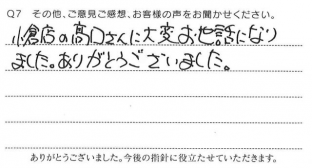 Q7 その他、ご意見ご感想、お客様の声をお聞かせください。
小倉店の髙口さんに大変お世話になり
ました。ありがとうございました。
ありがとうございました。今後の指針に役立たせていただきます。